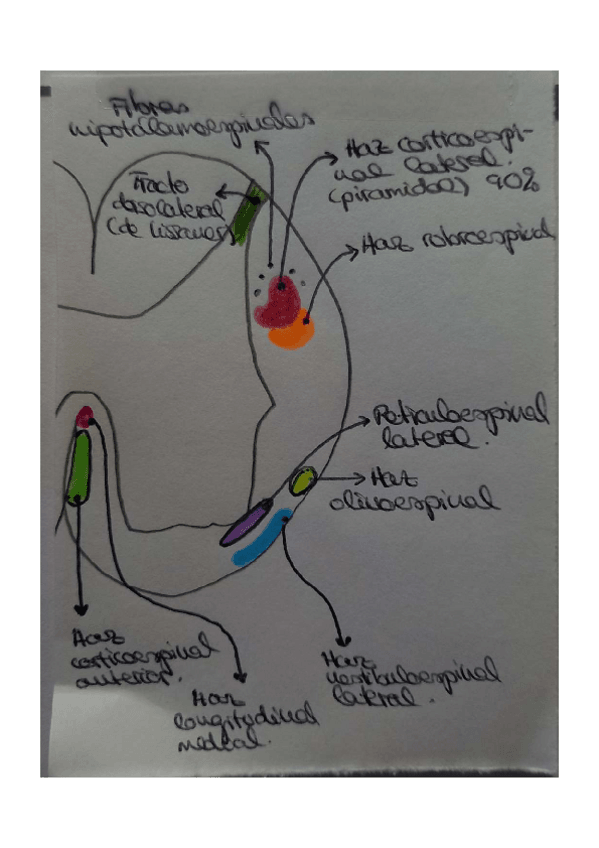 Fibras
hipotálamoespinales
Haz corticoespi-
nal lateral.
(piramidal) 90%
Tracto
dosolateral
(de lissauer)
Haz rubroespinal
Reticuloespinal
lateral.
Haz
olivoespinal
Haz
corticoespinal
anterior.
Haz
vestibuloespinal
lateral.
Haz
longitudinal
medial.